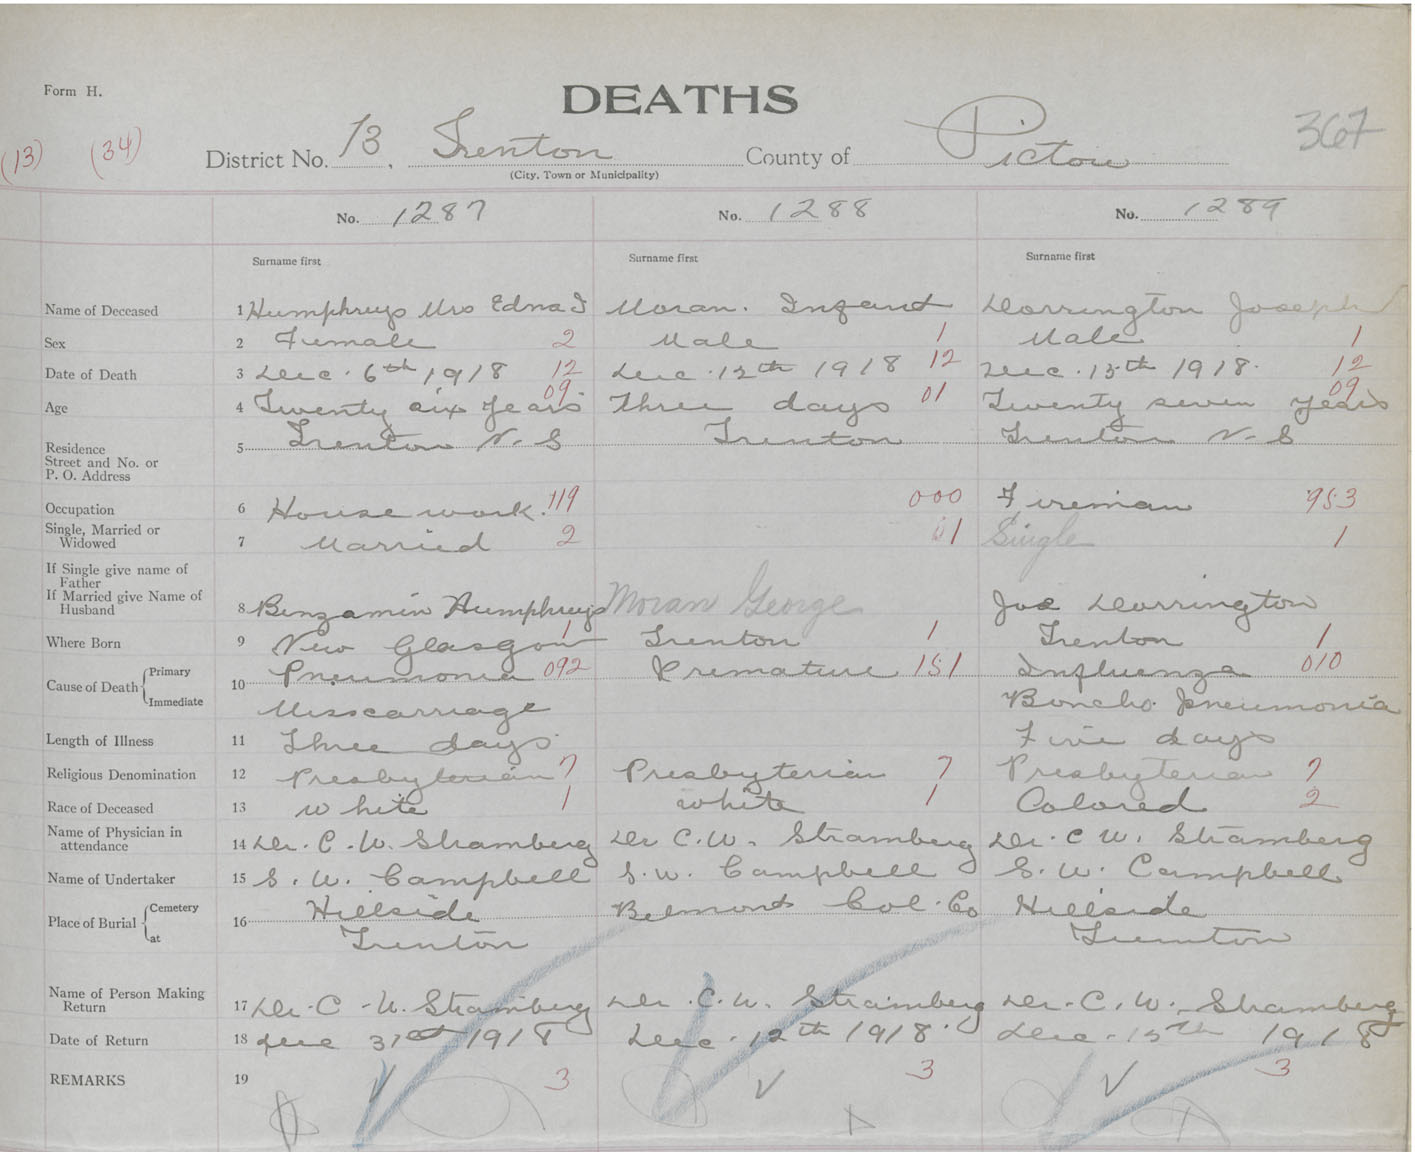 Form H.
DEATHS
367
(13) (34) District No. 13, Trenton County of Pictou
(City, Town or Municipality)
No. 1287 No. 1288 No. 1289
Surname first Surname first Surname first
Name of Deceased 1 Humphreys Mrs Edna J Moran. Infant Dorrington Joseph
Sex 2 Female 2 Male 1 Male 1
Date of Death 3 Dec. 6th 1918 12 Dec. 12th 1918 12 Dec. 15th 1918. 12
Age 4 Twenty six years 09 Three days 01 Twenty seven years 09
Residence 5 Trenton N. S Trenton Trenton N. S
Street and No. or
P. O. Address
Occupation 6 House work. 119 000 Fireman 953
Single, Married or
Widowed 7 Married 2 1 Single 1
If Single give name of
Father
If Married give Name of
Husband 8 Benzamin Humphreys Moran George Joe Dorrington
Where Born 9 New Glasgow 1 Trenton 1 Trenton 1
Cause of Death Primary 10 Pneumonia 092 Premature 151 Influenza 010
Immediate Misscarriage Boncho. Pneumonia
Length of Illness 11 Three days Five days
Religious Denomination 12 Presbyterian 7 Presbyterian 7 Presbyterian 7
Race of Deceased 13 White 1 White 1 Colored 2
Name of Physician in
attendance 14 Dr. C. W. Stramberg Dr C. W. Stramberg Dr. C W. Stramberg
Name of Undertaker 15 S. W. Campbell S. W. Campbell S. W. Campbell
Place of Burial Cemetery 16 Hillside Belmont Col. Co Hillside
at Trenton Trenton
Name of Person Making
Return 17 Dr. C. W. Stramberg Dr. C. W. Stramberg Dr. C. W. Stramberg
Date of Return 18 Dec 31st 1918 Dec. 12th 1918. Dec. 15th 1918
REMARKS 19 3 3 3